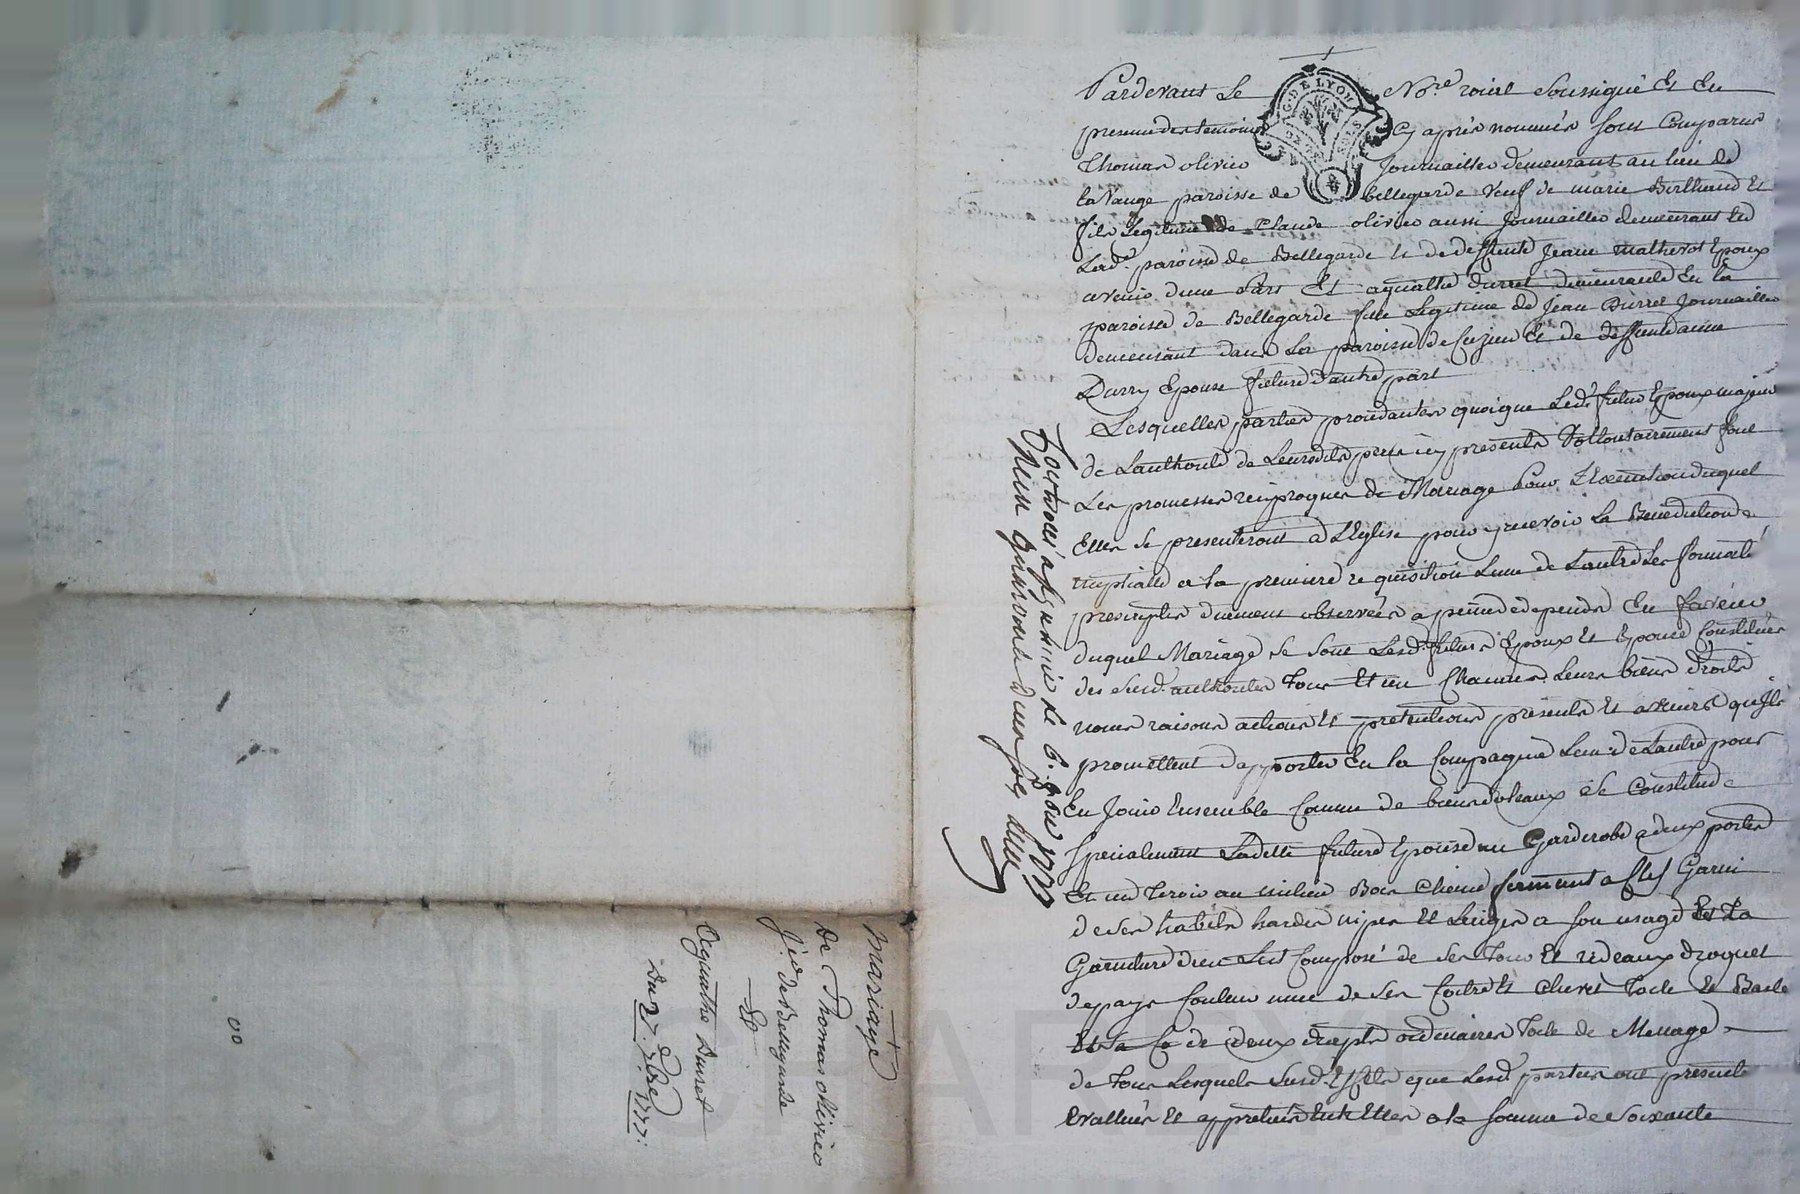 Pardevant Le Nore roial Soussigné Et En
presence des temoins Cy après nommés sont Comparus
Thomas olivier Journaillier demeurant au lieu de
la Vauge paroisse de bellegarde Veuf de marie Berthaud Et
fils Legitime de Claude olivier aussi Journaillier demeurant En
Lad. paroisse de Bellegarde et de deffunte Jeane Matherot Epoux
avenir dune Part Et aquathe durret demeurante En la
paroisse de Bellegarde fille Legitime de Jean Durret Journaillier
demeurant dans La paroisse de Cuzieu Et de deffunte anne
Darry Epouse future dautre part
Lesquelles parties procedantes quoique Led. futur Epoux majeur
de Lauthorité de Leursdits peres icy presents Vollontairement font
Les promesses reciproques de Mariage Pour L'Exécution duquel
Elles se presenteront a L'Eglise pour y recevoir La Benediction
nuptialle a la premiere requisition Lune de Lautre Les formalités
prescriptes duement observées a peine de depends En faveur
duquel Mariage se sont Lesd. futurs Epoux Et Epouse Constitués
des susd. authorités Tous Et un Chacuns Leurs biens droits
noms raisons actions Et pretentions presents Et avenirs qu'ils
promettent d'apporter En la Compagnie Lun de Lautre pour
En Jouir Ensemble Comme de biens dotaux Se Constitue
Specialement Ladette future Epouse un Garderobe a deux portes
Et un Tiroir au milieu Bois Chene fermant a Clef Garni
de ses habits hardes nipes Et Linges a son usage Et La
Garniture d'un Lict Composé de ses Tour Et rideaux droguet
de pays Couleur de ses Coitre Et Chevet Toile Et Basle
de deux draps ordinaires Toile de Menage
de Tous Lesquels Susd. Effets que Lesd. parties ont presente
Evallués Et appretiés Entr Elles a la somme de Soixante
le 6. 8bre 1777
mariage
De Thomas olivier
Jier de Bellegarde
Et
Aquathe Durret
Du 27. 7bre 1777.